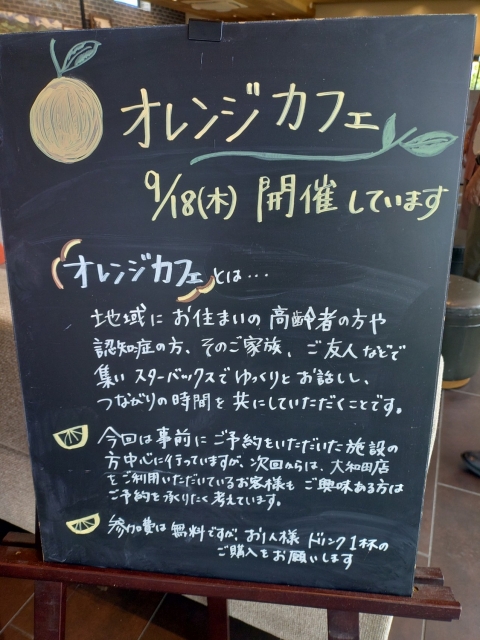 オレンジカフェ
9/18(木) 開催しています
オレンジカフェとは...
地域にお住まいの高齢者の方や
認知症の方、そのご家族、ご友人などで
集いスターバックスでゆっくりとお話しし、
つながりの時間を共にしていただくことです。
今回は事前にご予約をいただいた施設の
方中心に行っていますが、次回からは、大和田店
をご利用いただいているお客様も ご興味ある方は
ご予約を承りたく考えています。
参加費は無料ですが、お1人様 ドリンク1杯の
ご購入をお願いします